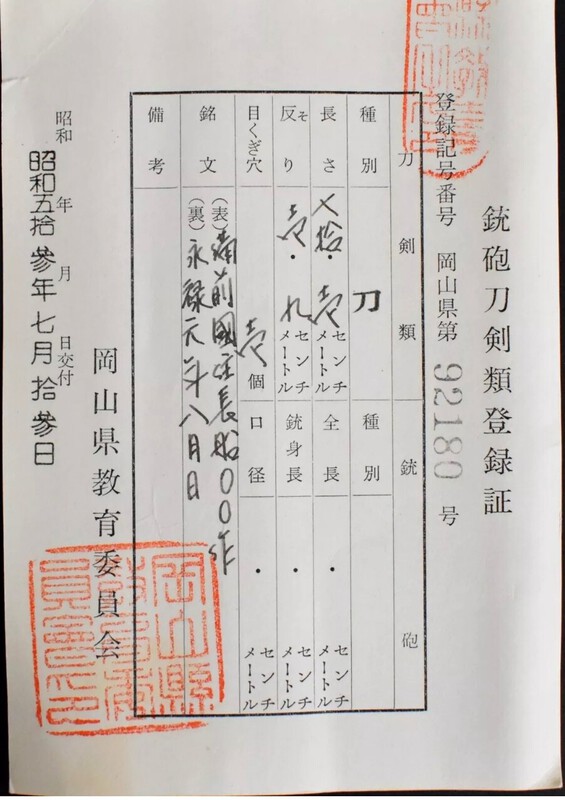 銃砲刀剣類登録証
登録記号番号 岡山県第 92180 号
刀剣類
銃砲
種別 刀
種別
長さ 拾・壱 センチメートル
全長 ・ センチメートル
反り そ 壱・九 センチメートル
銃身長 ・ センチメートル
目くぎ穴 壱個
口径 ・ センチメートル
銘文 (表)備前國住長船〇〇作
(裏)永禄元年八月日
備考
岡山県教育委員会
昭和 年 月 日交付
昭和五拾參年七月拾參日
岡山縣教育委員會印